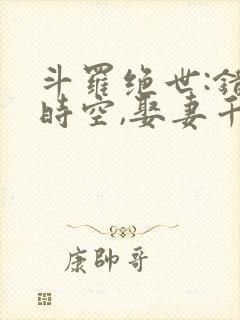 斗羅绝世:錯
時空,娶妻千
康帥哥